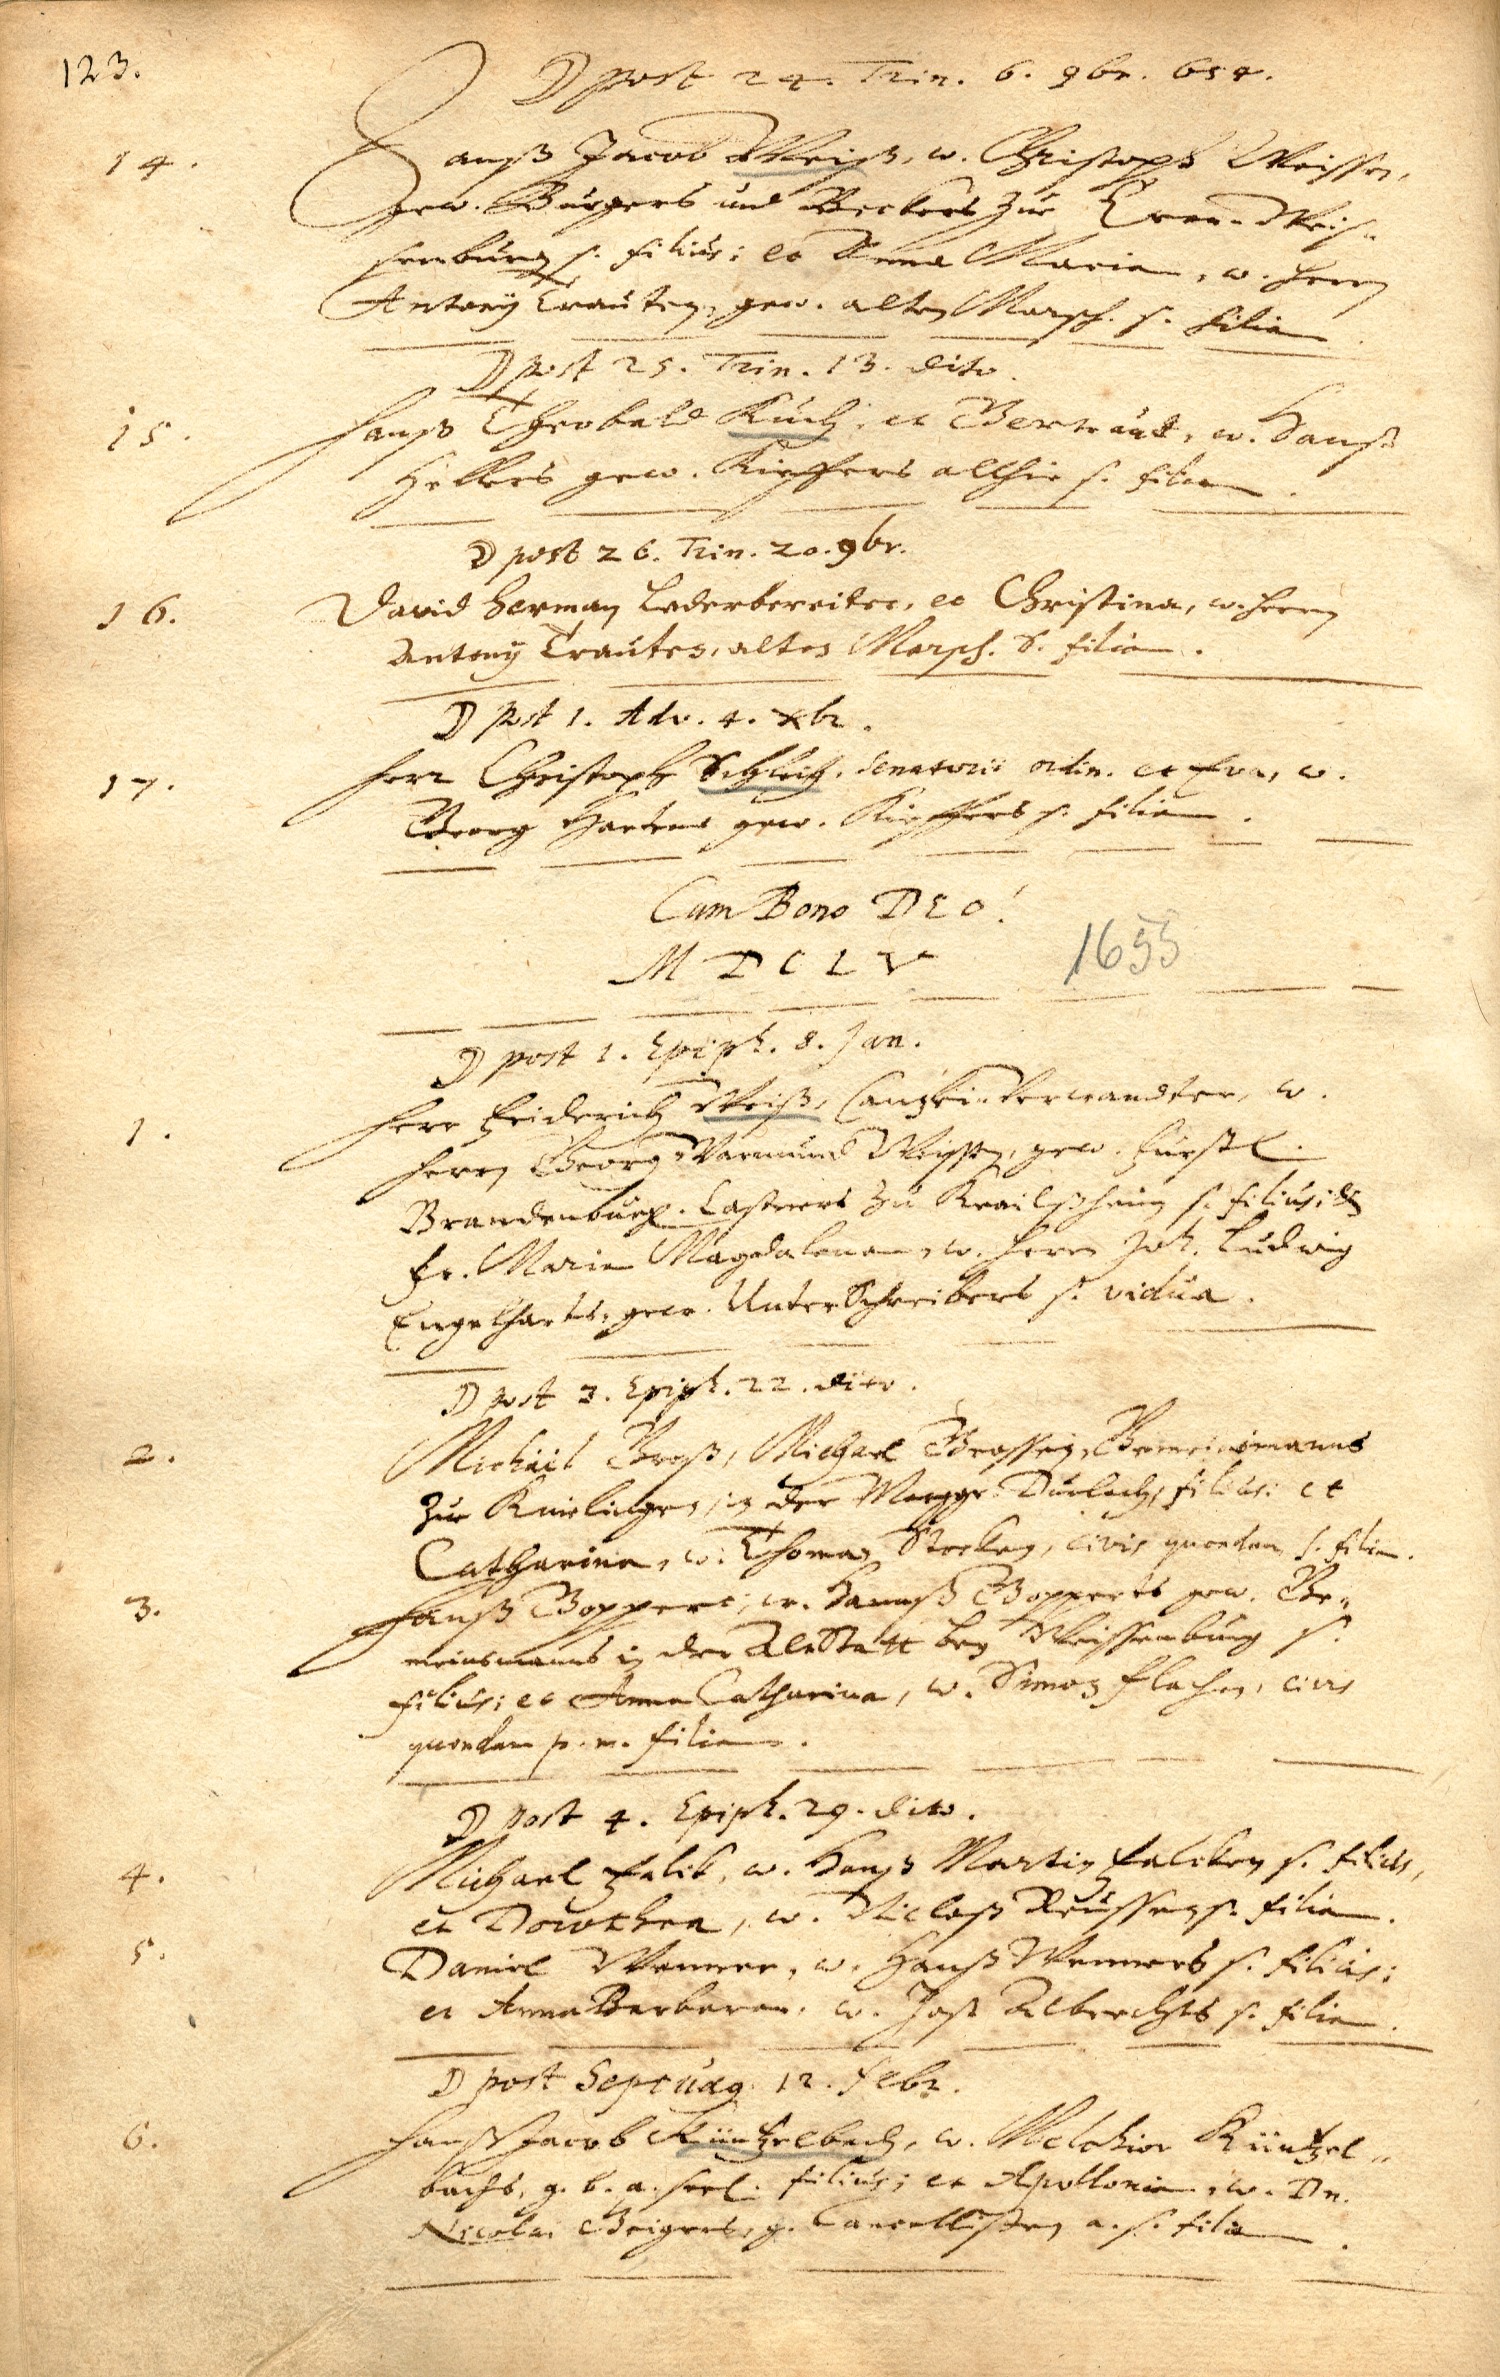 123.
D post 24. Trin. 6. 9br. 654.
14. Hanß Jacob Weiß, w. Christoph Weissen,
gew. Burgers und Beckers zur Cron-Weis-
semburg s. filius: et Anna Maria, w. herrn
Antony Trauten, gew. alten Marsch. s. filia
D post 25. Trin. 13. dito.
15. Hanß Theobald Kuch, et Gertraudt, w. Hanß
Hellers gew. Kieffers allhie s. filia.
D post 26. Trin. 20. 9br.
16. David Herman Lederbereiter, et Christina, w. herrn
Antony Trauten, alten Marsch. s. filia.
D post 1. Adv. 4. Xbr.
17. Herr Christoph Schleich, Senatorii ordin. et Eva, w.
Georg Hartens gew. Kieffers s. filia.
Cum Bono DEO!
MDCLV 1655
D post 1. Epiph. 8. Jan.
1. Herr Friderich Weiß, Cantzlei-Verwandter, w.
herrn Georg Warmund Weissen, gew. Fürstl.
Brandenburg. Castners zu Krailßheim s. filius; et
Fr. Maria Magdalena, w. herrn Joh. Ludwig
Engelharts, gew. UnterSchreibers s. vidua.
D post 3. Epiph. 22. dito.
2. Michäel Groß, Michael Grossen, Gemeinsmanns
zur Knielingen, in der Marggr. Durlach, filius: et
Catharina, w. Thoman Stocken, civis quondam s. filia.
3. Hanß Boppert, w. Hannß Bopperts gew. Ge-
meinsmanns in der AltStatt bey Weissemburg s.
filius; et Anna Catharina, w. Simon Flachen, civis
quondam p. m. filia.
D post 4. Epiph. 29. dito.
4. Michael Falck, w. Hanß Martin Falcken s. filius,
et Dorothea, w. Niclaß Reussen s. filia.
5. Daniel Wenner, w. Hanß Wenners s. filius;
et Anna Barbara, w. Jost Albrechts s. filia.
D post Septuag. 12. Febr.
6. Hanß Jacob Küntzelbach, w. Melchior Küntzel-
bachs, g. b. a. seel. filius; et Apollonia, w. Dn.
Nicolai Geigers, g. Cancellisten a. s. filia.